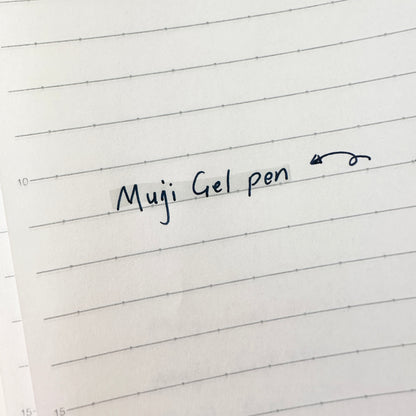 10
Muji Gel pen
15
15